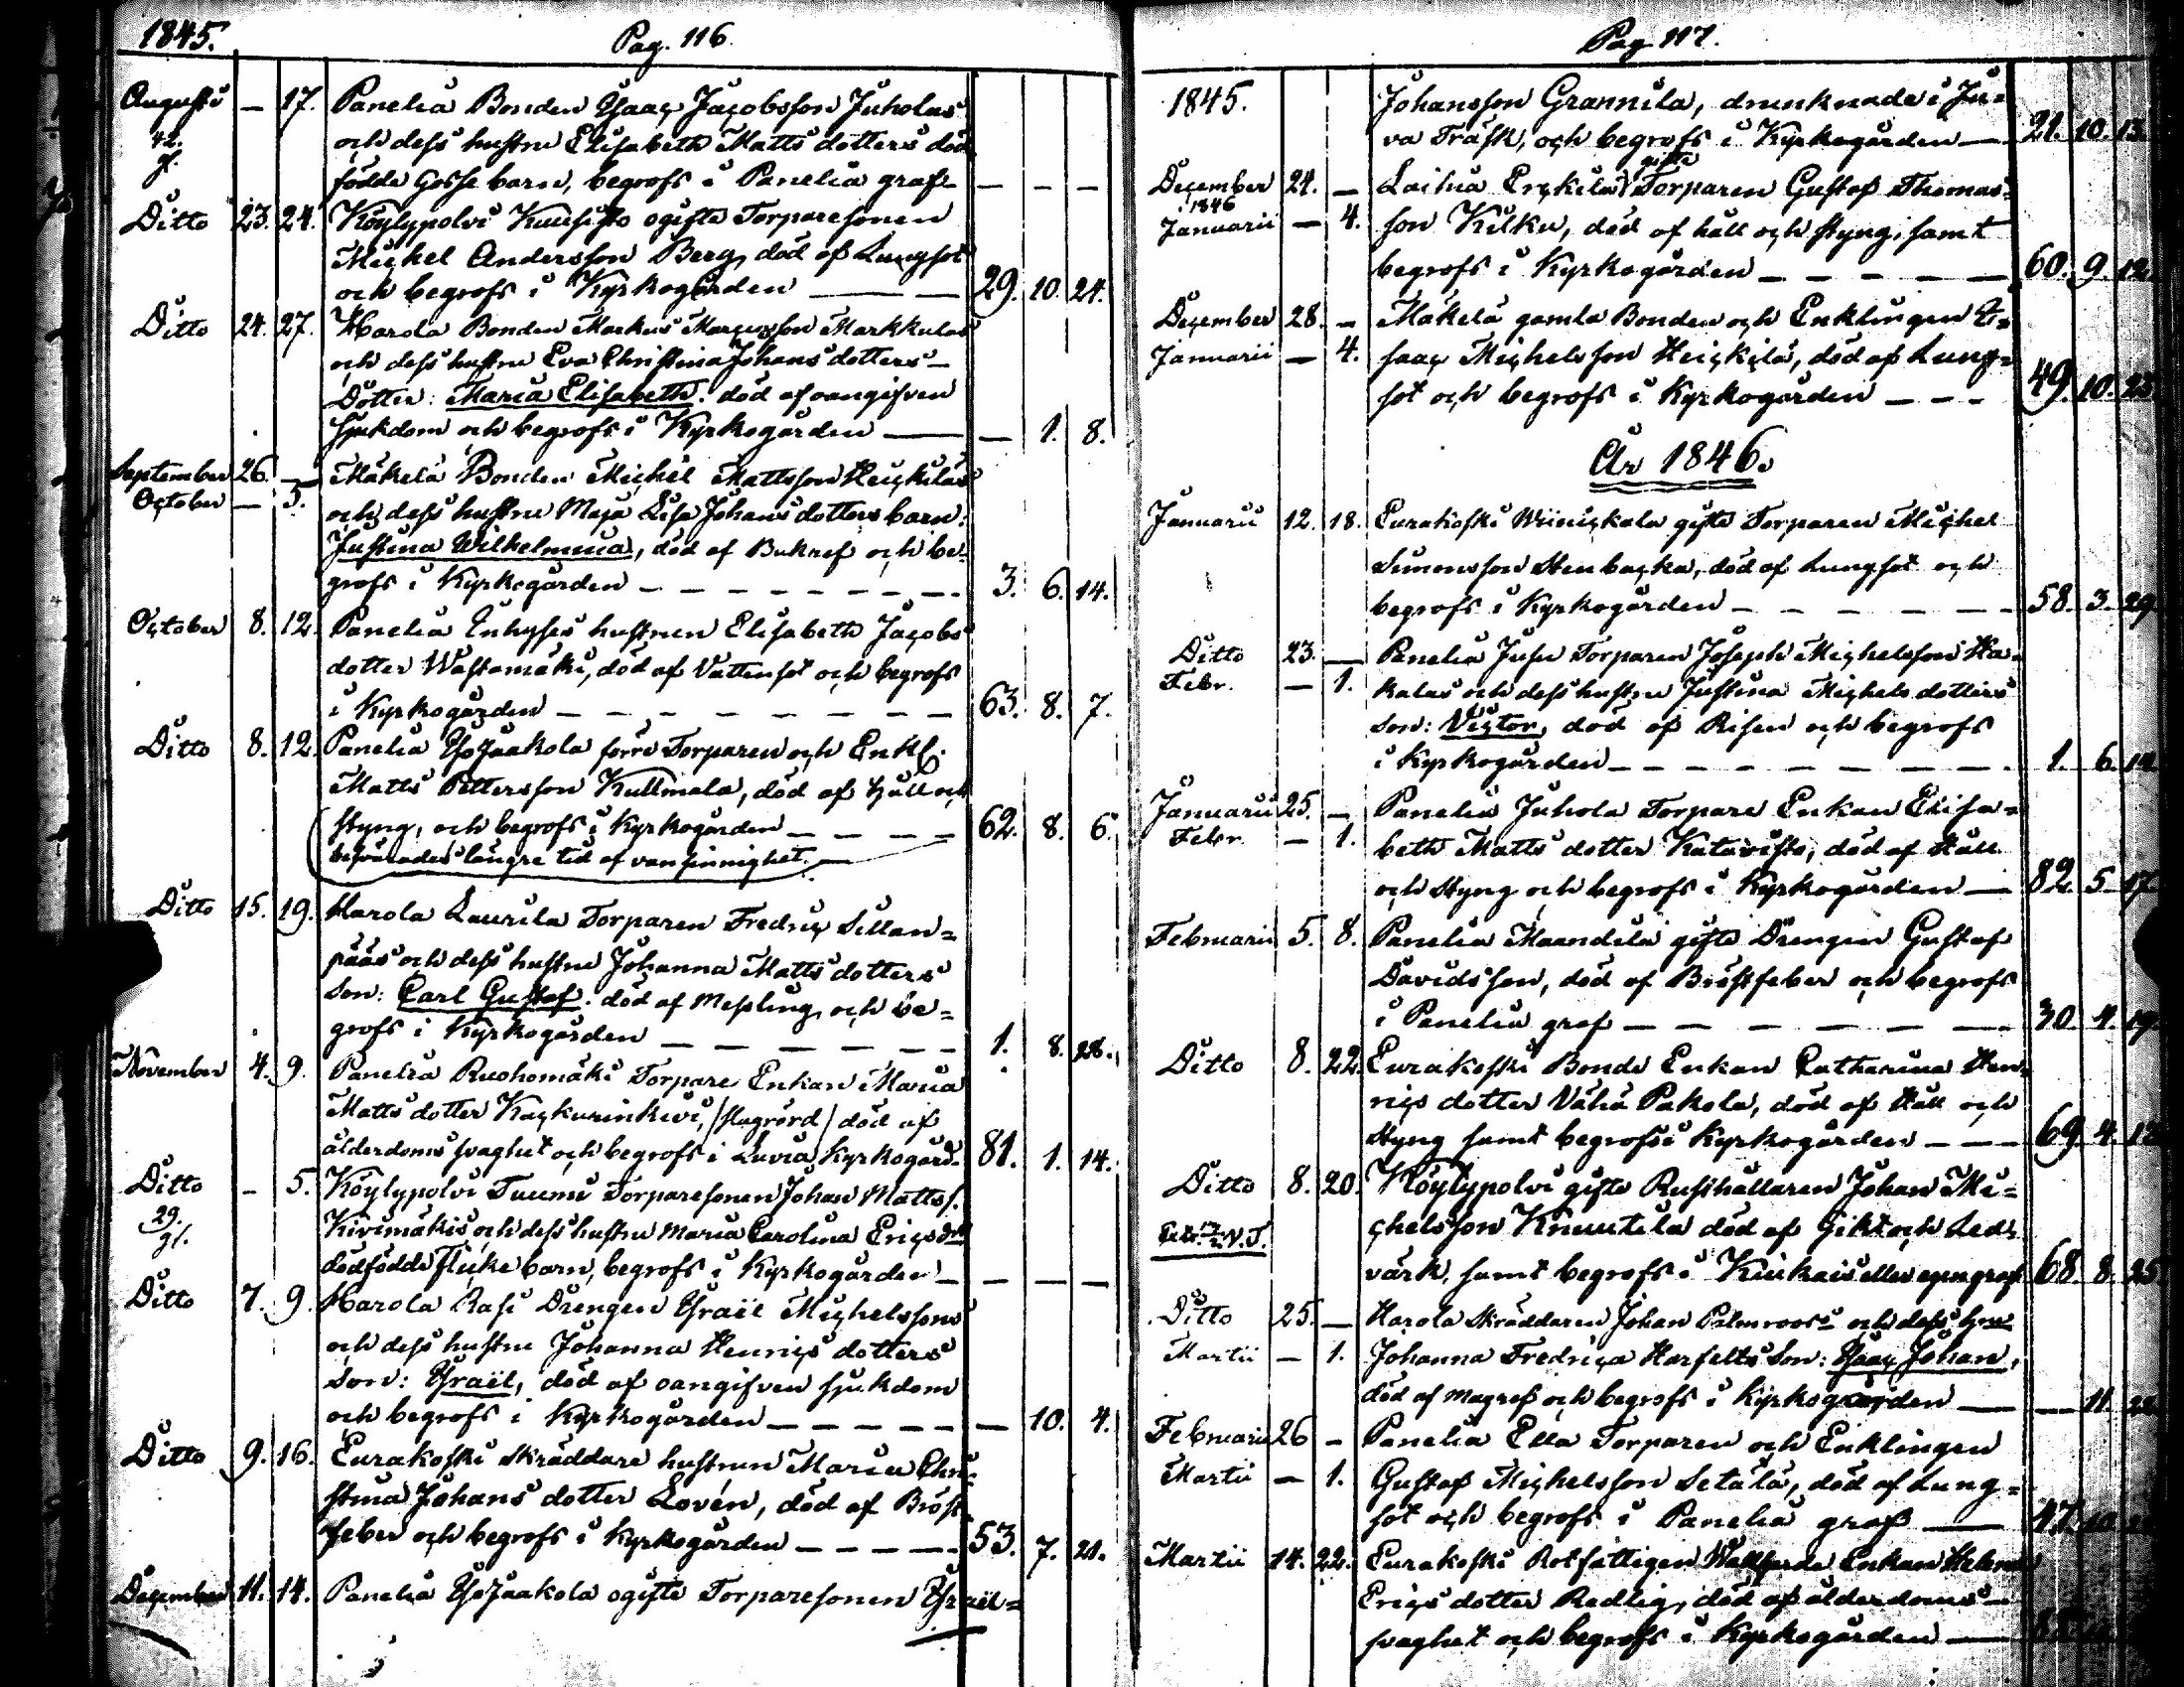 1845.
Pag. 116.
Augusti — 17. Panelia Bonden Isaac Jacobsson Juholas
42. och dess hustru Elisabeth Matts dotters död
gl. födde Gosse barn, begrofs i Panelia graf — — —
Ditto 23. 24. Köylypolvi Kuusisto ogifte Torparesonen
Michel Andersson Berg, död af Lungsot
och begrofs i Kyrkogården — — 29. 10. 24.
Ditto 24. 27. Harola Bonden Markus Marcusson Markkulas
och dess hustru Eva Christina Johans dotters —
Dotter: Maria Elisabeth. död af oangifven
sjukdom och begrofs i Kyrkogården — — 1. 8.
September 26. — Mäkelä Bonden Michel Mattsson Heickiläs
October — 5. och dess hustru Maja Lisa Johans dotters barn:
Justina Wilhelmina, död af Bukref och be-
grofs i Kyrkogården — — — — — — — 3. 6. 14.
October 8. 12. Panelia Inhyses hustrun Elisabeth Jacobs
dotter Wästämäki, död af Vattensot och begrofs
i Kyrkogården — — — — — — — — 63. 8. 7.
Ditto 8. 12. Panelia Iso Jaakola förre Torparen och Enkl:
Matts Pettersson Kullmala, död af håll och
styng, och begrofs i Kyrkogården — — — — 62. 8. 6.
besvärades längre tid af vansinnighet. —
Ditto 15. 19. Harola Laurila Torparen Fredric Sillan=
pääs och dess hustru Johanna Matts dotters
Son: Carl Gustaf. död af Messling, och be=
grofs i Kyrkogården — — — — — — 1. 8. 28.
November 4. 9. Panelia Ruohomäki Torpare Enkan Maria
Matts dotter Kackurinkivi, /slagrörd/ död af
ålderdoms svaghet och begrofs i Luvia Kyrkogård. 81. 1. 14.
Ditto — 5. Köylypolvi Tuumi Torparesonen Johan Mattss.
29. Kivimäkis och dess hustru Maria Carolina Erics drs
gl. dödfödde Flicke barn, begrofs i Kyrkogården — — — —
Ditto 7. 9. Harola Rasi Drengen Israël Michelssons
och dess hustru Johanna Henrics dotters
Son: Israël, död af oangifven sjukdom
och begrofs i Kyrkogården — — — — — — 10. 4.
Ditto 9. 16. Eurakoski skräddare hustrun Maria Chri-
stina Johans dotter Lovén, död af Bröst-
feber och begrofs i Kyrkogården — — — — — 53. 7. 21.
December 11. 14. Panelia Iso Jaakola ogifte Torparesonen Israël=
Pag. 117.
1845. Johansson Grannila, drunknade i Ju=
va Träsk, och begrofs i Kyrkogården — 21. 10. 13.
gifte
December 24. — Laihia Erckilas Torparen Gustaf Thomas=
1846
Januarii — 4. son Kilku, död af håll och styng, samt
begrofs i Kyrkogården — — — — — 60. 9. 12.
December 28. — Mäkelä gamla Bonden och Enklingen I=
Januarii — 4. saac Michelsson Heickilä, död af Lung=
sot och begrofs i Kyrkogården — — — 49. 10. 23.
År 1846.
Januarii 12. 18. Eurakoski Wiinickala gifte Torparen Michel
Simonsson Stenbacka, död af Lungsot och
begrofs i Kyrkogården — — — — — — 58. 3. 29.
Ditto 23. — Panelia Jusu Torparen Joseph Michelsson Ha-
Febr. — 1. kalas och dess hustru Justina Michels dotters
Son: Victor, död af Risen och begrofs
i Kyrkogården — — — — — — — — 1. 6.
Januarii 25. — Panelia Juhola Torpare Enkan Elisa=
Febr. — 1. beth Matts dotter Katavisto, död af Håll
och Styng och begrofs i Kyrkogården — 82. 5. 17.
Februarii 5. 8. Panelia Maandela gifte Drengen Gustaf
Davidsson, död af Bröstfeber och begrofs
i Panelia graf — — — — — — — 30. 4. 19.
Ditto 8. 22. Eurakoski Bonde Enkan Catharina Hen-
rics dotter Vähä Pakola, död af Håll och
Styng samt begrofs i Kyrkogården — — — 69. 4.
Ditto 8. 20. Köylypolvi gifte Rusthållaren Johan Mi=
chelsson Knuutila död af Gikt och Led-
värk, samt begrofs i Kiukais eller egen graf 68. 8. 25.
Ditto 25. — Harola Skräddaren Johan Palmroos's och dess hru
Martii — 1. Johanna Fredrica Harfelts Son: Isaac Johan,
död af Magref och begrofs i Kyrkogården — — 11.
Februarii 26 — Panelia Ella Torparen och Enklingen
Martii — 1. Gustaf Michelsson Setälä, död af Lung=
sot och begrofs i Panelia graf — 47. 10.
Martii 14. 22. Eurakoski Rotfattigen Enkan Helena
Erics dotter Redlig, död af ålderdoms —
svaghet och begrofs i Kyrkogården —